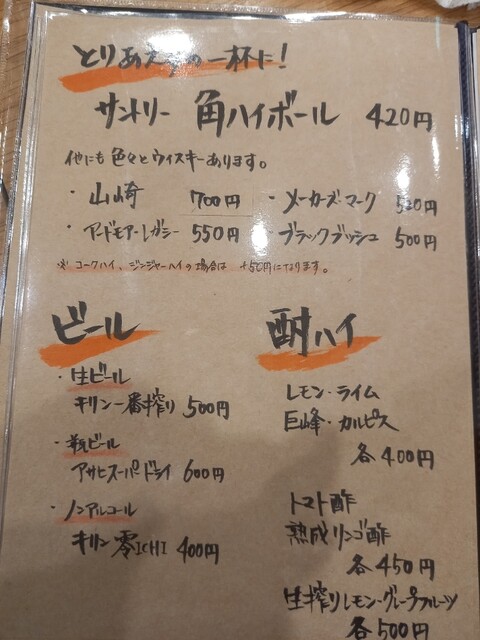 とりあえずの一杯に!
サントリー 角ハイボール 420円
他にも色々とウィスキーあります。
・山崎 700円 ・メーカーズマーク 円
・アードモア・レガシー 550円 ・ブラックブッシュ 500円
※ コークハイ、ジンジャーハイの場合は +50円になります。
ビール
・生ビール
キリン一番搾り 500円
・瓶ビール
アサヒスーパードライ 600円
・ノンアルコール
キリン 零ICHI 400円
酎ハイ
レモン・ライム
巨峰・カルピス
各400円
トマト酢
熟成リンゴ酢
各450円
生搾りレモン・グレープフルーツ
各500円